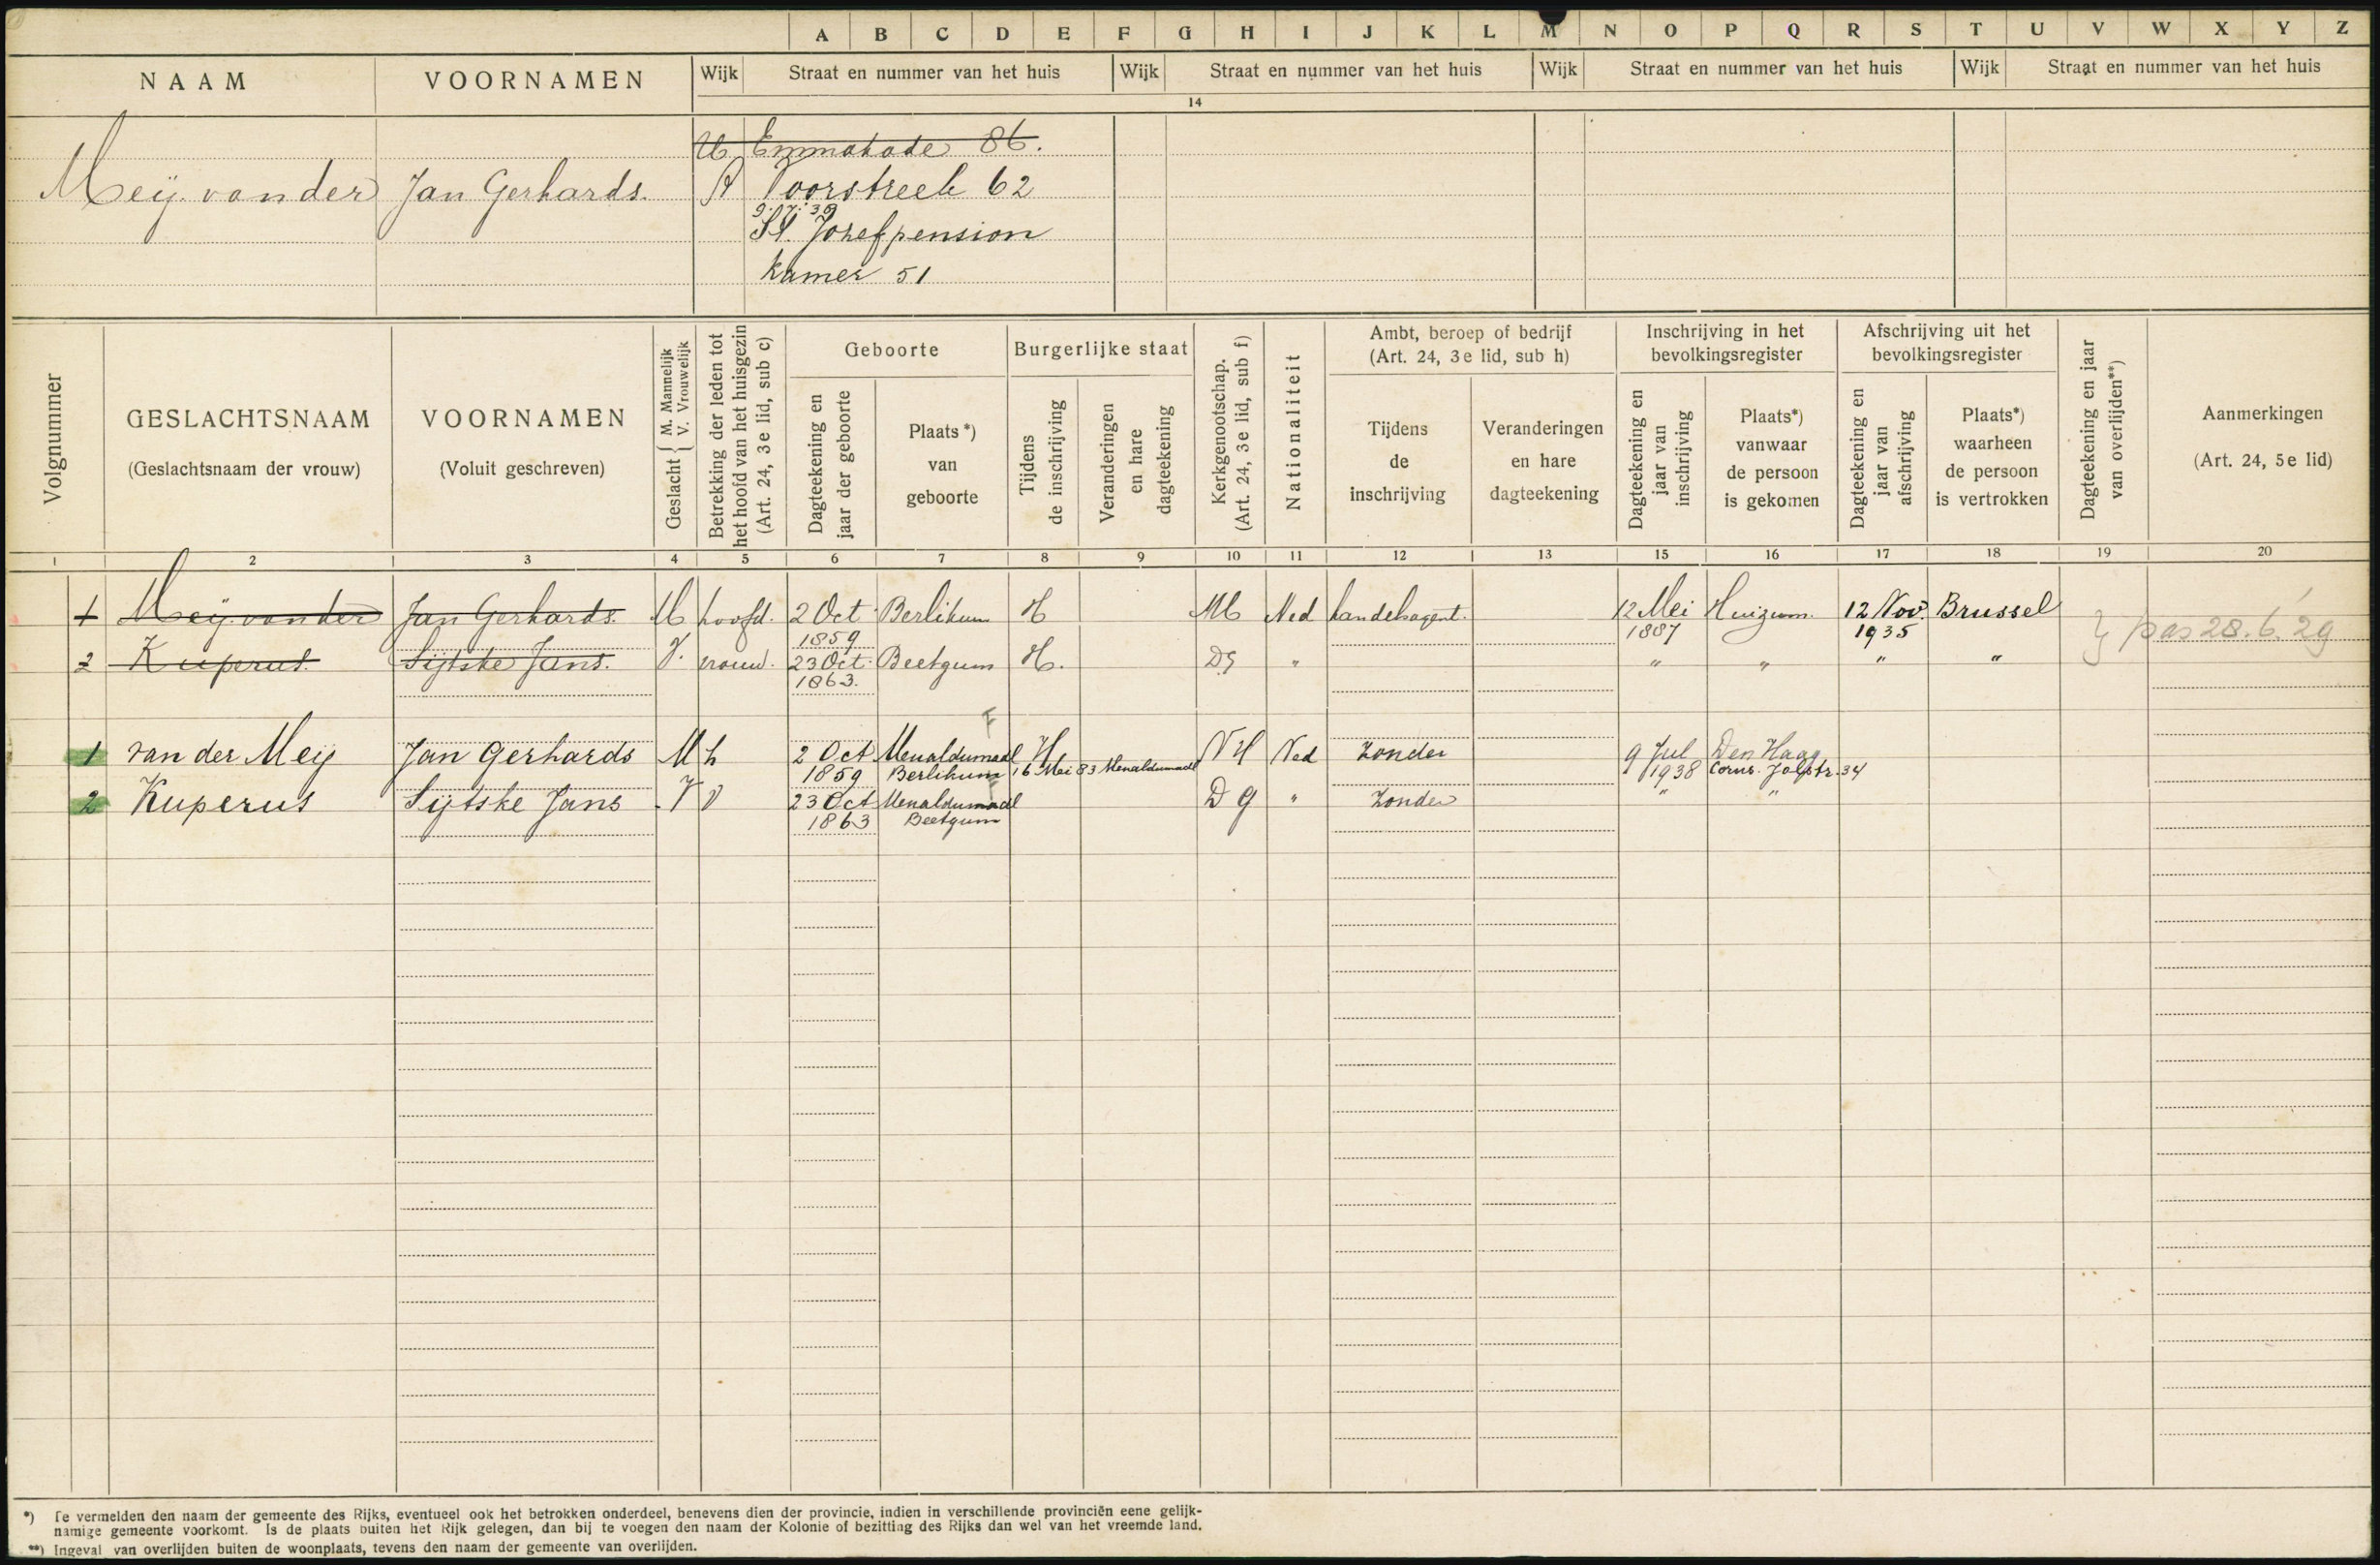 A B C D E F G H I J K L M N O P Q R S T U V W X Y Z
NAAM VOORNAMEN Wijk Straat en nummer van het huis Wijk Straat en nummer van het huis Wijk Straat en nummer van het huis Wijk Straat en nummer van het huis
14
Emmakade 86.
Meij. van der Jan Gerhards. A Voorstreek 62
9. 7. 38
St. Jozefpension
Kamer 51
Volgnummer
GESLACHTSNAAM
(Geslachtsnaam der vrouw)
VOORNAMEN
(Voluit geschreven)
Geslacht { M. Mannelijk
V. Vrouwelijk
Betrekking der leden tot
het hoofd van het huisgezin
(Art. 24, 3e lid, sub c)
Geboorte
Dagteekening en
jaar der geboorte
Plaats *)
van
geboorte
Burgerlijke staat
Tijdens
de inschrijving
Veranderingen
en hare
dagteekening
Kerkgenootschap.
(Art. 24, 3e lid, sub f)
Nationaliteit
Ambt, beroep of bedrijf
(Art. 24, 3e lid, sub h)
Tijdens
de
inschrijving
Veranderingen
en hare
dagteekening
Inschrijving in het
bevolkingsregister
Dagteekening en
jaar van
inschrijving
Plaats*)
vanwaar
de persoon
is gekomen
Afschrijving uit het
bevolkingsregister
Dagteekening en
jaar van
afschrijving
Plaats*)
waarheen
de persoon
is vertrokken
Dagteekening en jaar
van overlijden**)
Aanmerkingen
(Art. 24, 5e lid)
1 2 3 4 5 6 7 8 9 10 11 12 13 15 16 17 18 19 20
1 Meij. van der Jan Gerhards. M hoofd. 2 Oct Berlikum H Ned handelsagent. 12 Mei Huizum. 12 Nov. Brussel
1859 1887 1935 pas 28.6.'29
2 Kuperus. Sijtske Jans. V. vrouw. 23 Oct. Beetgum H. DG " " " " "
1863.
F
1 van der Meij Jan Gerhards M h 2 Oct Menaldumadl H NH Ned Zonder 9 Jul Den Haag
1859 Berlikum 16 Mei 83 Menaldumadl 1938 Corns. Jolstr. 34
2 Kuperus Sijtske Jans V V 23 Oct Menaldumadl D G " Zonder " "
1863 Beetgum
*) Te vermelden den naam der gemeente des Rijks, eventueel ook het betrokken onderdeel, benevens dien der provincie, indien in verschillende provinciën eene gelijk-
namige gemeente voorkomt. Is de plaats buiten het Rijk gelegen, dan bij te voegen den naam der Kolonie of bezitting des Rijks dan wel van het vreemde land.
**) Ingeval van overlijden buiten de woonplaats, tevens den naam der gemeente van overlijden.